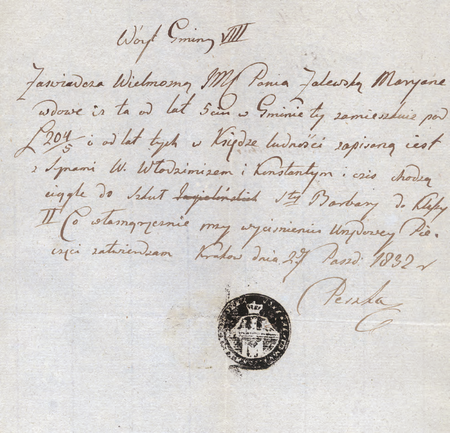 Wóyt Gminy VIII
Zaświadcza Wielmożną JMć Panią Zalewską Maryannę
wdowę iż ta od lat 5ciu w Gminie tÿ zamieszkuje pod
L 204/5 i od lat tych w Księdze ludności zapisaną jest
z Synami W. Włodzimirzem i Konstantym i ciż chodzą
ciągle do Szkół Sty Barbary do Klassy
II Co własnoręcznie przy wyciśnieniu Urzędowey Pie-
częci zatwierdzam Kraków dnia 27 Paźd: 1832 r
Peszka